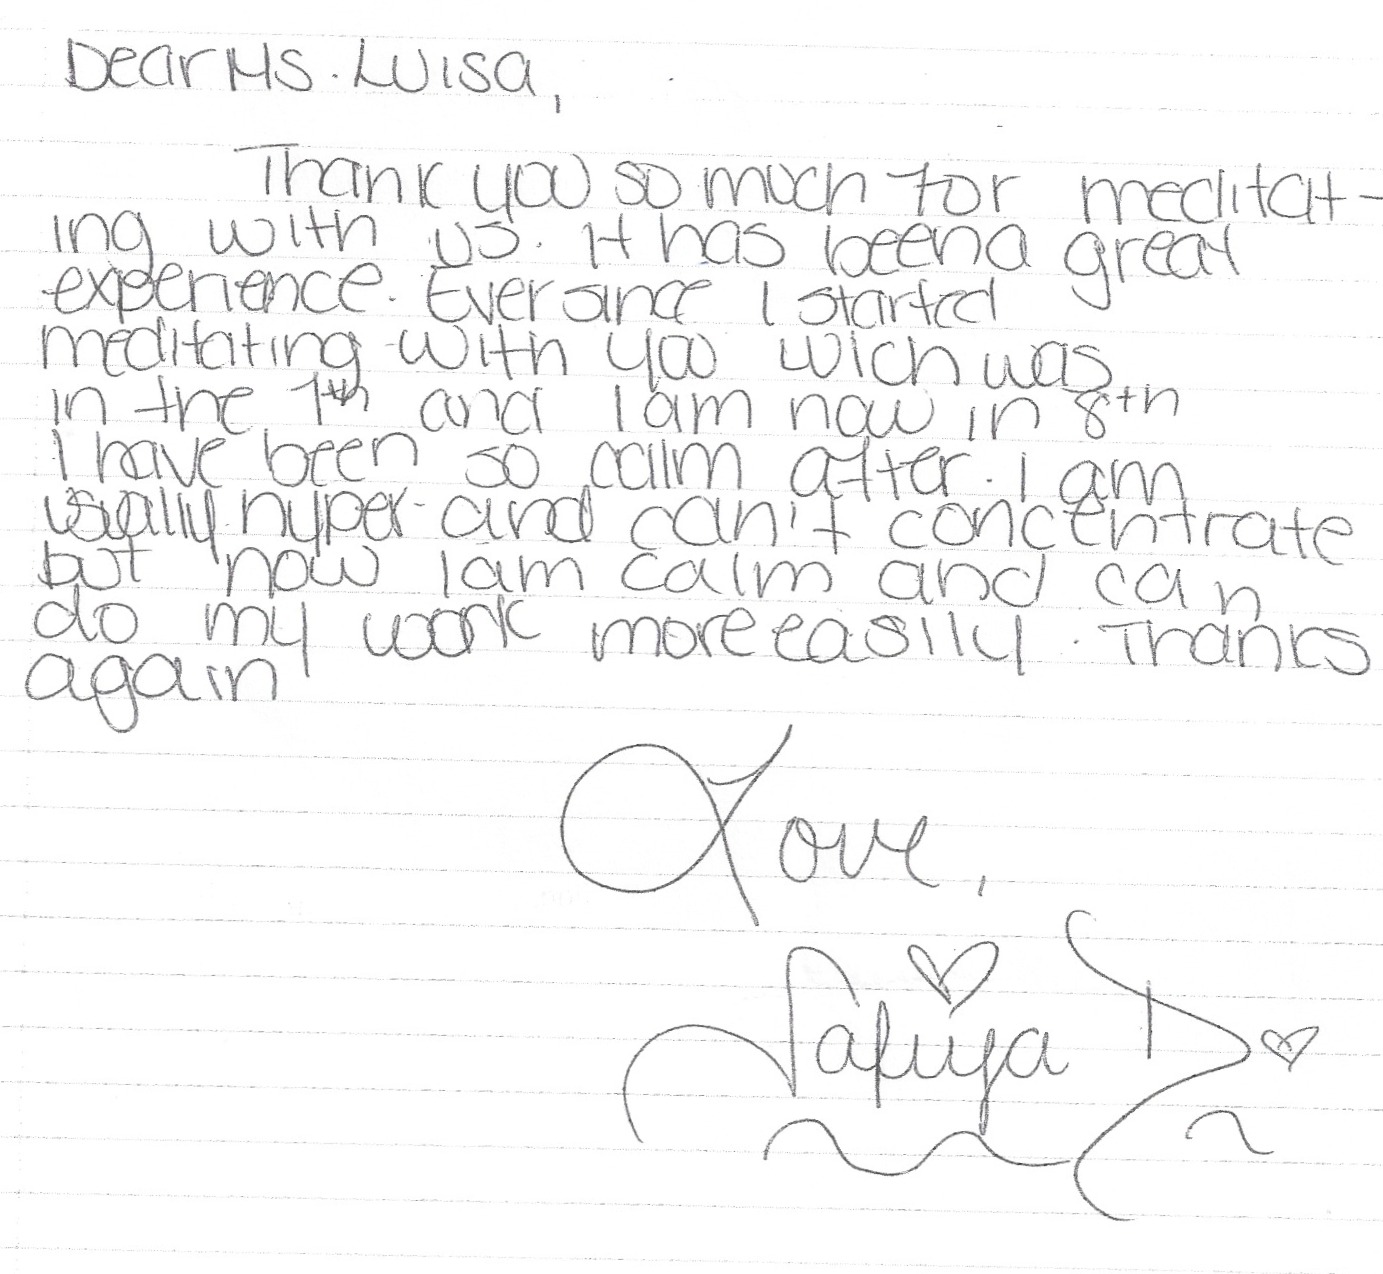 Dear Ms. Luisa,
Thank you so much for meditat-
ing with us. It has been a great
experience. Ever since I started
meditating with you wich was
in the 7th and I am now in 8th
I have been so calm after. I am
usually hyper and can't concentrate
but now I am calm and can
do my work more easily. Thanks
again
Love,
Safiya D